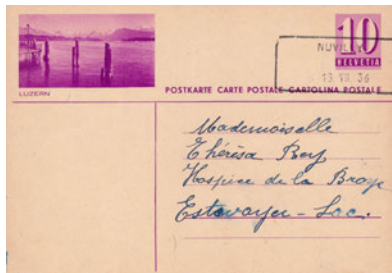 10
HELVETIA
NUVILLY
13. VII. 36
LUZERN
POSTKARTE CARTE POSTALE CARTOLINA POSTALE
Mademoiselle
Thérèsa Rey
Hospice de la Broye
Estavayer-Lac.